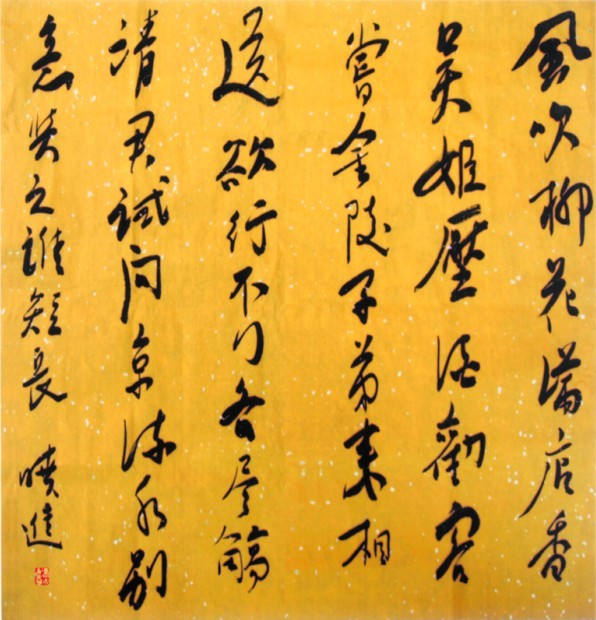 風吹柳花滿店香
吴姬壓酒勸客
嘗金陵子弟来相
送欲行不行各尽觴
請君試问东流水别
意與之誰短長 曉進